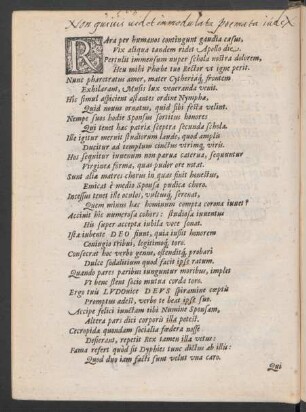 Non quivis videt immodulata poemata iudex
RAra per humanos contingunt gaudia casus,
Vix aliqua tandem ridet Apollo die.
Pertulit immensum nuper schola nostra dolorem,
Heu mihi Phœbe tuo Rector vt igne perit.
Nunc pharetratus amor, mater Cythereia, frontem
Exhilarant, Musis lux veneranda venit.
Hic simul aspiciunt astantes ordine Nymphæ,
Quid nouus ornatus, quid sibi festa velint.
Nempe suos hodie Sponsus sortitus honores
Qui tenet hac patria sceptra secunda schola.
Ille igitur meruit studiorum laude, quod ampli
Ducitur ad templum cinctus vtrimq; viris.
Hos sequitur inueum non parua caterua, sequuntur
Virginea forma, quas pudor ore notat.
Sunt alia matres chorus in quas fluit honestus,
Emicat è medio Sponsa pudica choro.
Incessus tenet iste oculos, vultumq; serenat,
Quem minus hac hominum compta corona iuuet?
Accinit his numerosa cohors: studiosa iuuentus
His super accepta iubila voce sonat.
Ista iubente DEO fiunt, quia iussit honorem
Coniugio tribui, legitimoq; toro.
Consecrat hoc verbo genus, ostenditq; probari
Dulce sodalitium quod facit ipse ratum.
Quando pares paribus iunguntur moribus, implet
Vt bene stent socio mutua corda toro.
Ergo tuis LVDOuice DEVS spiramine cœptis
Promptus adest, verbo te beat ipse suo.
Accipe felici iunctam tibi Numine Sponsam,
Altera pars dici corporis illa potest.
Cecropida quondam socialia fœdera nosse
Desierant, repetit Rex tamen illa vitus:
Fama refert quòd sit Dyphios tunc dictus ab illis:
Quod duo iam facti sunt velut vna caro.
Qui